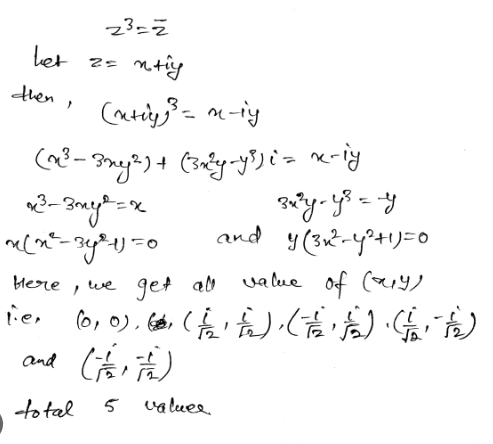 z³ = z̄
Let z = x+iy
then, (x+iy)³ = x-iy
(x³-3xy²) + (3x²y-y³)i = x-iy
x³-3xy² = x 3x²y-y³ = -y
x(x²-3y²-1) = 0 and y(3x²-y²+1)=0
Here, we get all value of (x,y)
i.e. (0,0), (i/√2, i/√2), (-i/√2, i/√2), (i/√2, -i/√2)
and (-i/√2, -i/√2)
total 5 values